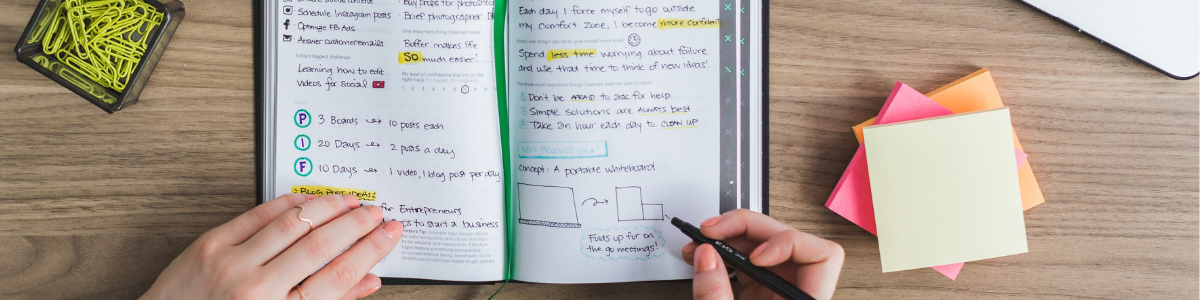 Schedule Instagram posts
Optimize FB Ads
Answer customer emails
Today's biggest challenge
Learning how to edit
videos for social
Buy props for
Brief photographer
One important thing I learned today
Buffer makes life
SO much easier!
My level of confidence that I'm on the
right track
1 2 3 4 5 6 7 8 9
P 3 Boards → 10 posts each
I 20 Days → 2 posts a day
F 10 Days → 1 video, 1 blog post per day
BLOG POST IDEAS
for Entrepreneurs
to start a business
Each day I force myself to go outside
my comfort zone, I become more confident
Spend less time worrying about failure
and use that time to think of new ideas!
Don't be AFRAID to ask for help
Simple solutions are ALWAYS best
Take an hour each day to CLEAN UP
concept: A portable whiteboard
Folds up for on
the go meetings!